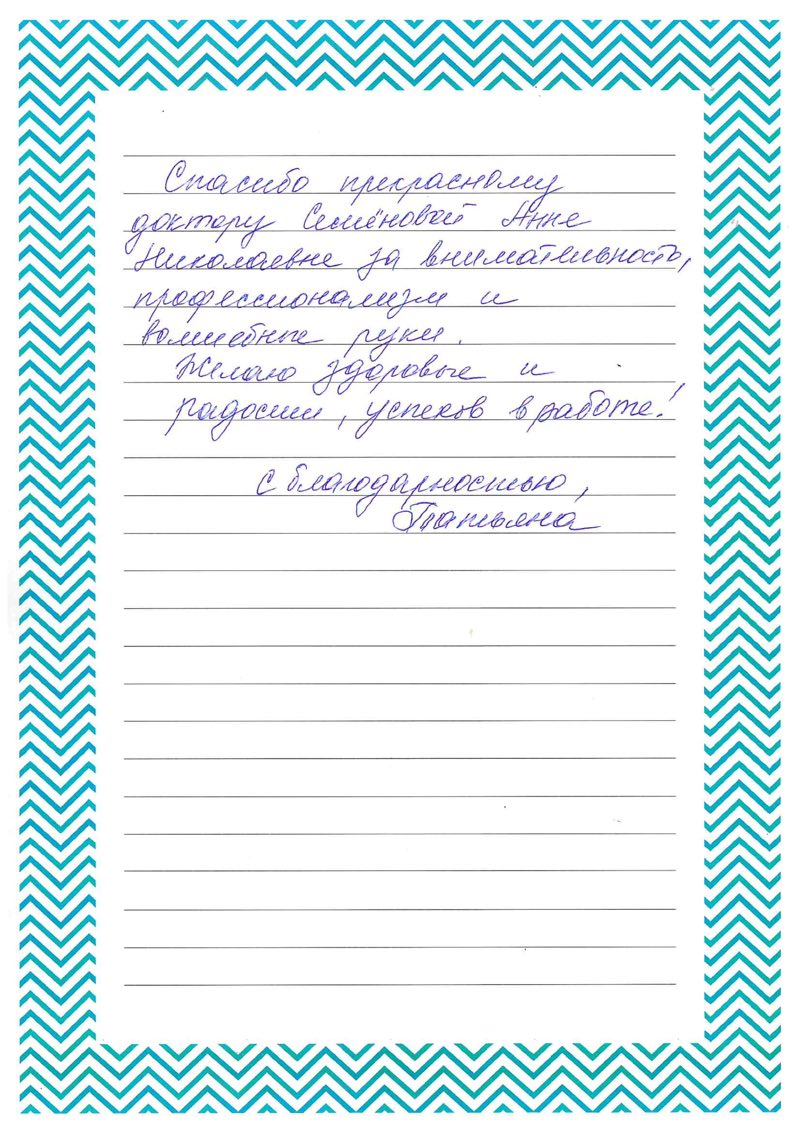 Спасибо прекрасному
доктору Семёновой Анне
Николаевне за внимательность,
профессионализм и
волшебные руки.
Желаю здоровья и
радости, успехов в работе!
С благодарностью,
Татьяна